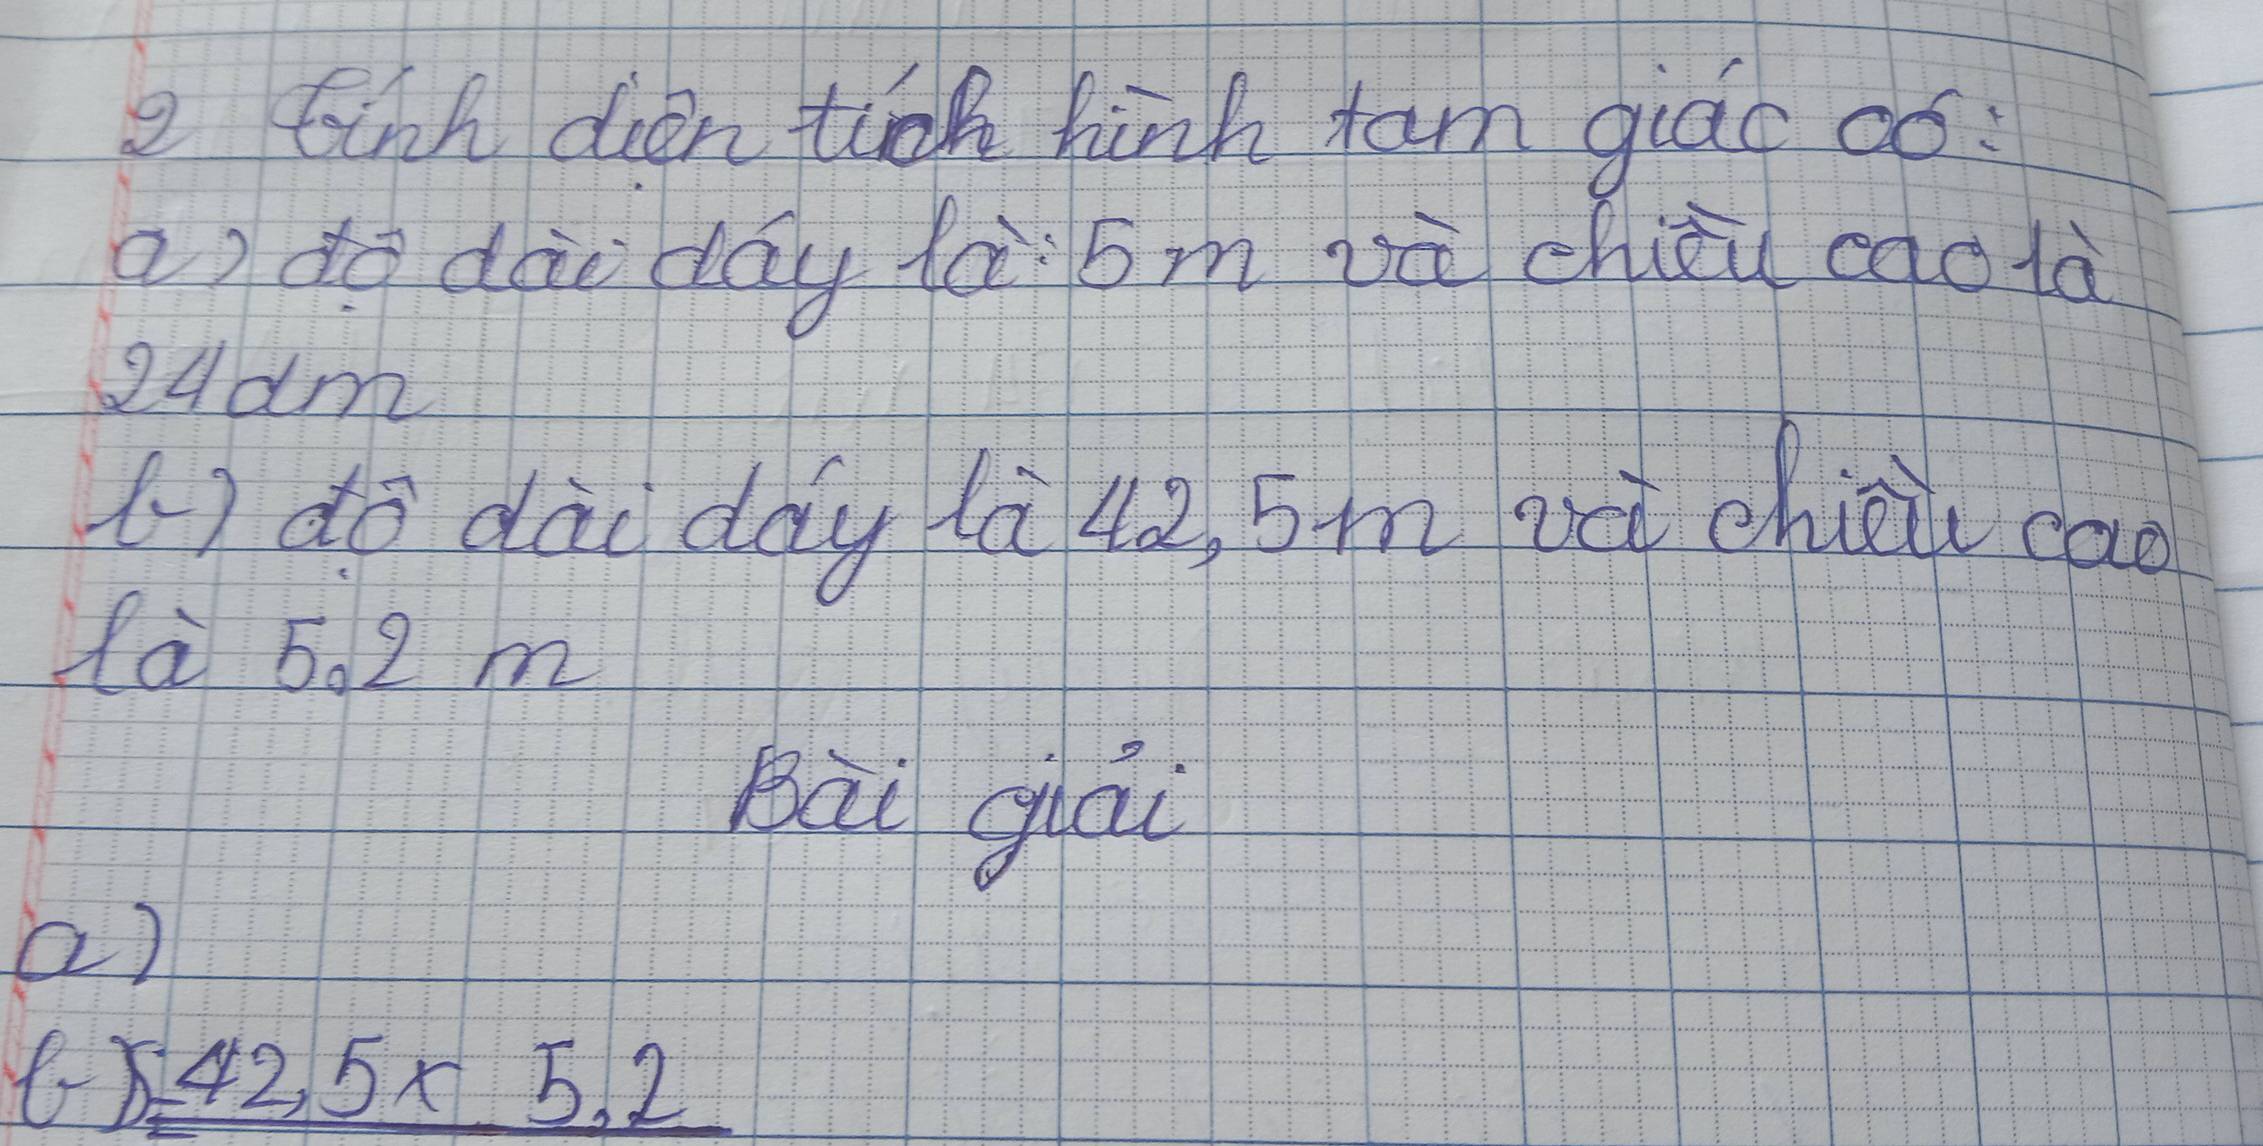 2 Tính diện tích hình tam giác có:
a) độ dài dáy là: 5m và chiều cao là
24dm
b) độ dài dáy là 42,5m và chiều cao
là 5,2 m
Bài giải
a)
b) S=42,5x 5,2